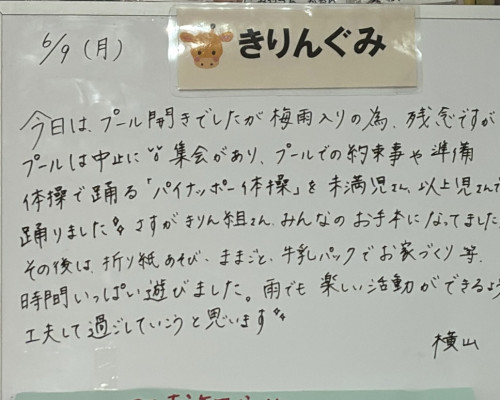 6/9 (月)
きりんぐみ
今日は、プール開きでしたが梅雨入りの為、残念ですが
プールは中止に 集会があり、プールでの約束事や準備
体操で踊る「パイナッポー体操」を未満児さん、以上児さんで
踊りました さすがきりん組さん、みんなのお手本になってました
その後は、折り紙あそび、ままごと、牛乳パックでお家づくり等、
時間いっぱい遊びました。雨でも楽しい活動ができるよう
工夫して過ごしていこうと思います
横山